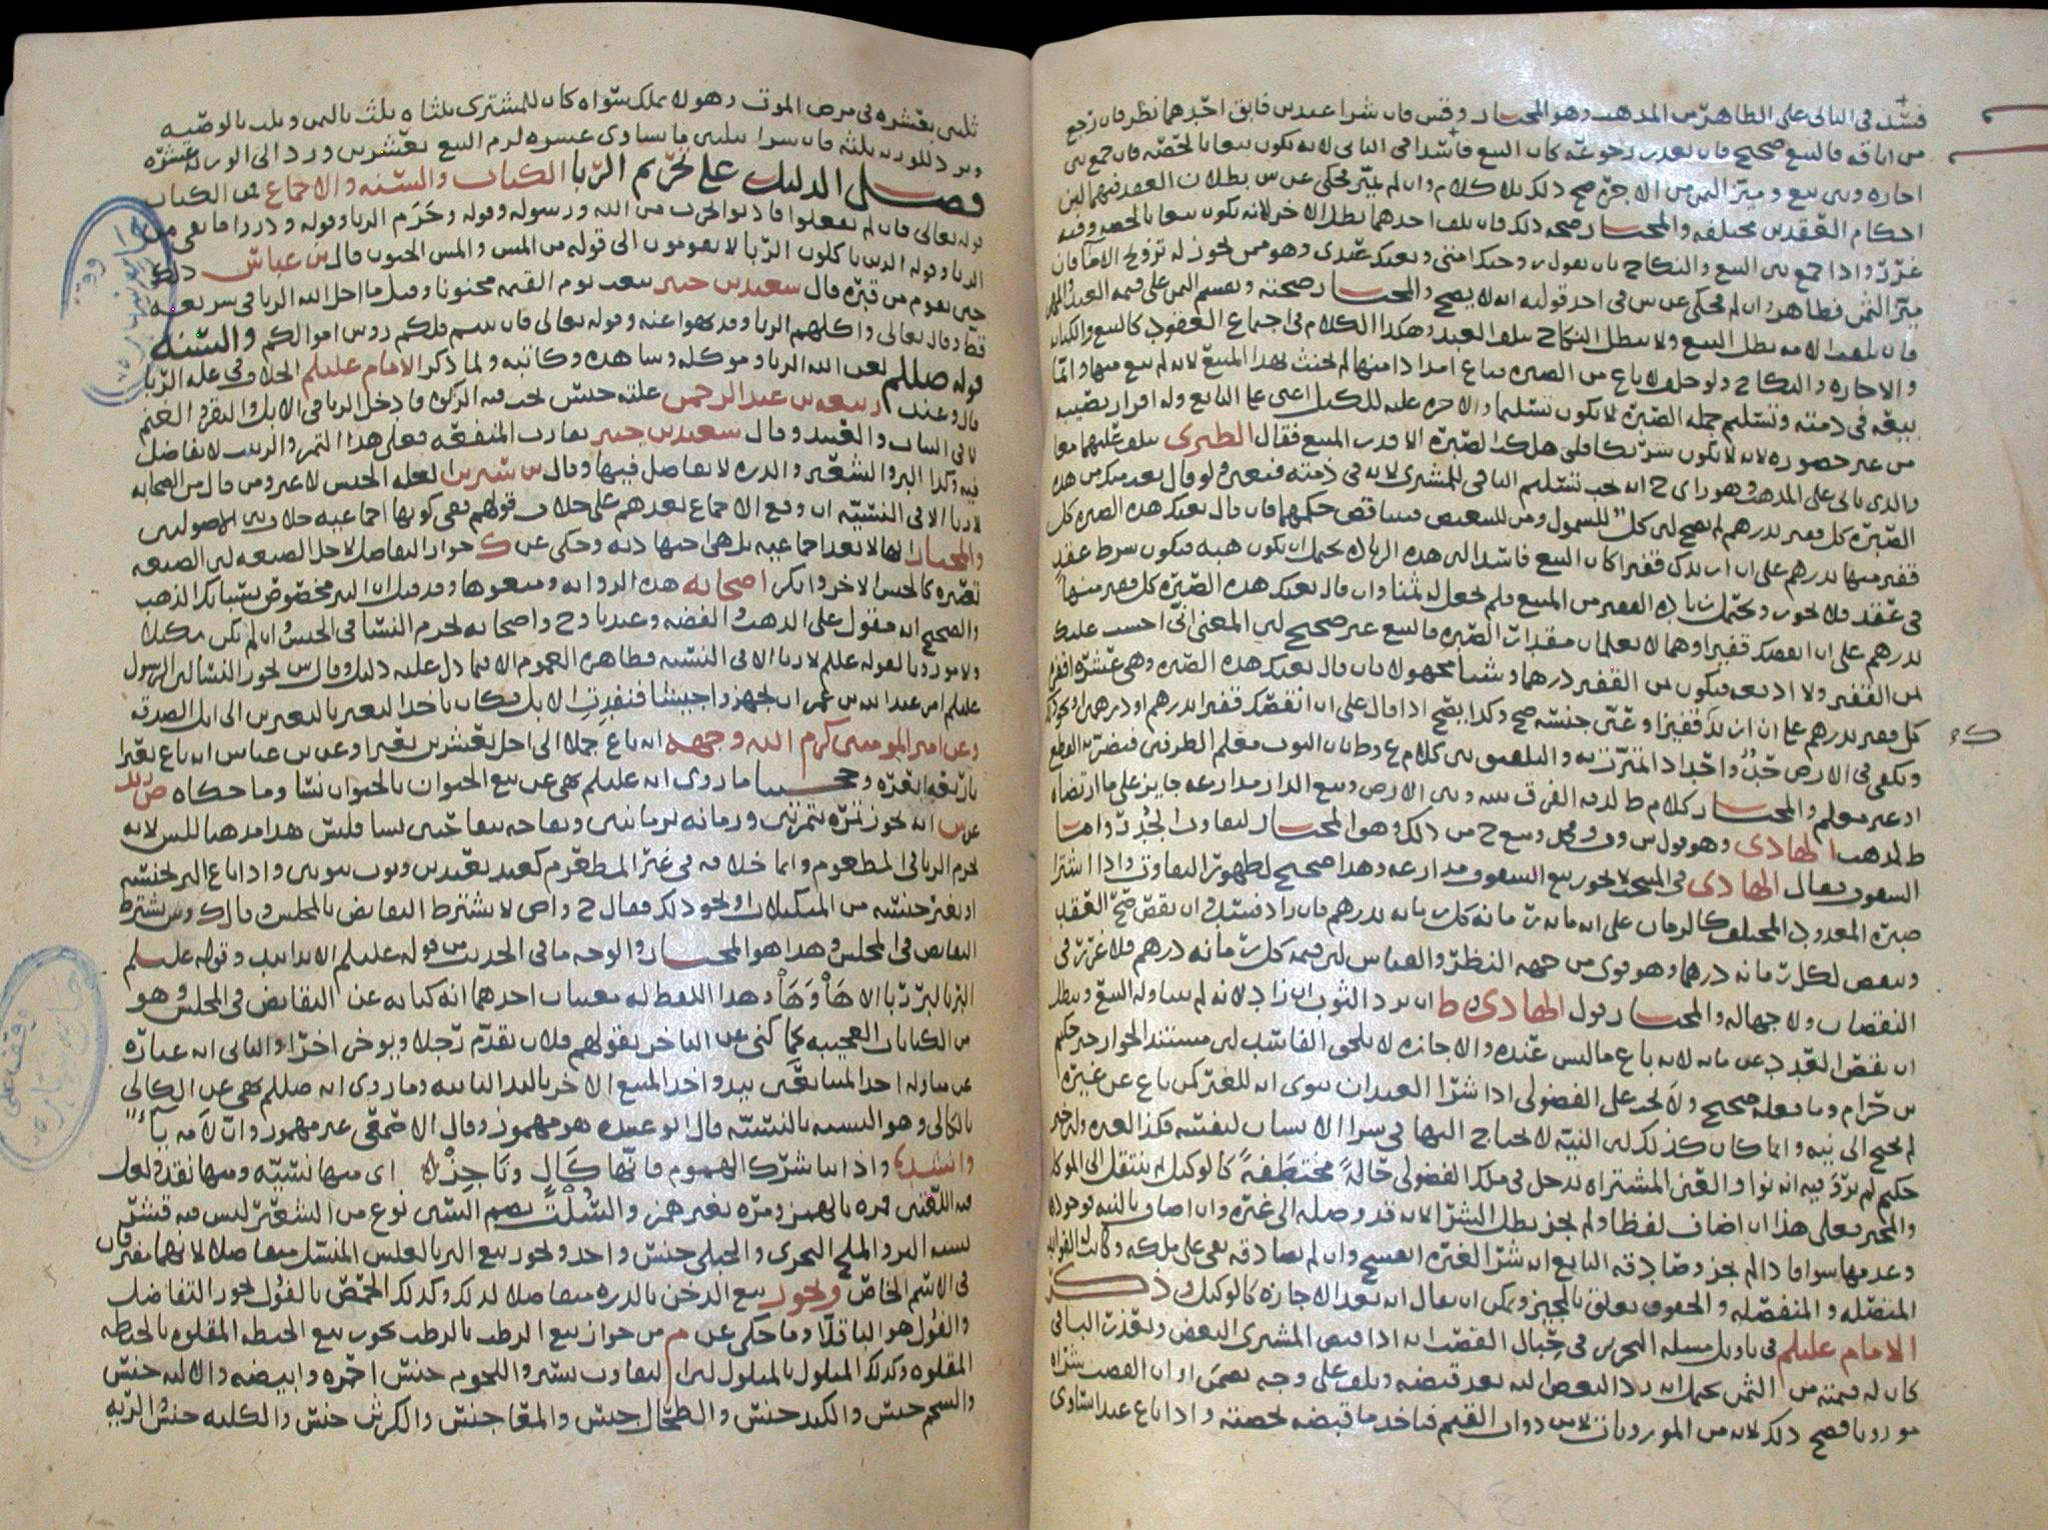 فسد في الثاني على الظاهر من المذهب وهو المختار وقس فان شرا عبدين فابق احدهما نظر فان رجع
من اباقه فالبيع صحيح فان تعذر رجوعه كان البيع فاسدا في الثاني لانه يكون بيعا بالحصه فان جمع بين
اجاره وبين بيع وميز الثمن من الاجره صح ذلك بلا كلام وان لم يميز فحكي عن س بطلان العقد فيهما لان
احكام العقدين مختلفه والمختار صحه ذلك فان تلف احدهما بطل الاخر لانه يكون بيعا بالحصه وفيه
غرر واذا جمع بين البيع والنكاح بان يقول زوجتك امتي وبعتك عبدي وهو ممن يجوز له تزويج الاما فان
ميز الثمن فظاهر وان لم فحكي عن س في احد قوليه انه لا يصح والمختار صحته ويقسم الثمن على قيمه العبد والمهر
فان تلفت الامه بطل البيع ولا يبطل النكاح بتلف العبد وهكذا الكلام في اجتماع العقود كالبيع والكتابه
والاجاره والنكاح ولو حلف لا باع من الصبره فباع امدادا منها لم يحنث بهذا المبيع لانه لم يبع منها وانما
بيعه في ذمته وتسليم جمله الصبره لا يكون تسليما والاجره عليه للكيل اعني على البايع وله افراز نصيبه
من غير حضوره لانه لا يكون شريكا فلو هلكت الصبره الا قدر المبيع فقال الطبري
والذي ياتي على المذهب وهو راي ح انه يجب تسليم الباقي للمشتري لانه في ذمته فتعين ولو قال بعت منك من هذه
الصبره كل قفيز بدرهم لم يصح لان كل للشمول ومن للتبعيض فيتناقض حكمهما فان قال بعتك هذه الصبره كل
قفيز منها بدرهم على ان ازيدك قفيزا كان البيع فاسدا لان هذه الزياده يحتمل ان يكون هبه فيكون شرط عقد
في عقد فلا يجوز ويحتمل زياده القفيز من المبيع فلم يجعل له ثمنا وان قال بعتك هذه الصبره كل قفيز منها
بدرهم على ان انقصك قفيزا وهما لا يعلمان مقدار الصبره فالبيع غير صحيح لان المعنى اني احسب عليك
ثمن القفيز ولا ادفعه فيكون ثمن القفيز درهما وشيا مجهولا فان قال بعتك هذه الصبره وهي عشره اقفزه
كل قفيز بدرهم على ان ازيدك قفيزا وعين جنسه صح وكذا يصح اذا قال على ان انقصك قفيزا بدرهم او درهمين
او غير معلم والمختار كلام ط لدقه الفرق بينه وبين الارض وبيع الدار مذارعه جايز على ما ارتضاه
ط لمذهب الهادي وهو قول س وف ومحمد ومنع ح من ذلك وهو المختار لتفاوت الجدر واما
السقوف فقال الهادي في المنتخب لا يجوز بيع السقوف مذارعه وهذا صحيح لظهور التفاوت واذا اشترا
صبره المعدود المختلف كالرمان على انه مايه رمانه كل رمانه بدرهم فان زاد فسد وان نقص صح العقد
وينقص لكل رمانه درهما وهو قوي من جهه النظر والقياس لان قيمه كل رمانه درهم فلا غرر في
النقصان ولا جهاله والمختار قول الهادي وط ان يرد الثوب ان زاد لانه لم يتناوله البيع ويبطل
ان نقص العقد عن مايه لانه باع ما ليس عنده والاجازه لا يلحق الفاسد لان مستند الجواز خبر حكيم
بن حزام وما فعله صحيح ولا يجد على الفضولي اذا شرا العبد ان ينوي انه للغير كمن باع عن غيره
لم يحتج الى نيه وانما كان كذلك لان النيه لا يحتاج اليها في شرا الانسان لنفسه فكذا لغيره
حكيم لم يرد فيه انه نوا والعين المشتراه تدخل في ملك الفضولي حالة مختطفة كالوكيل ثم ينتقل الى الموكل
والمخبر فعلى هذا ان اضاف لفظا ولم يجز بطل الشرا لانه قد وصله الى غيره وان اضاف بالنيه
وعدمها سوا فاذا لم يجز وصادقه البايع انه شرا لغيره انفسخ وان لم يصادقه بقي على ملكه وكانت الفوايد
المتصله والمنفصله والحقوق تعلق بالمجيز ويمكن ان يقال انه بعد الاجازه كالوكيل وذكر
الامام عليلم في تاويل مسله التحرير في حبال القصب انه اذا قبض المشتري البعض وتعذر الباقي
كان له قيمته من الثمن يحتمل انه رد البعض اليه بعد قبضه وتلف على وجه يضمن او ان القصب شراه
موزونا فصح ذلك لانه من الموزونات لا من ذوات القيم فياخذ ما قبضه بحصته واذا باع عبدا يساوي
ثلثين بعشره في مرض الموت وهو لا يملك سواه كان للمشتري ثلثاه ثلث بالثمن وثلث بالوصيه
ويرد للورثه ثلثه فان شرا بثلثين ما يساوي عشره لزم البيع بعشرين ورد الى الورثه عشره
فصل الدليل على تحريم الربا الكتاب والسنه والاجماع فمن الكتاب
قوله تعالى فان لم تفعلوا فاذنوا بحرب من الله ورسوله وقوله وحرم الربا وقوله وذروا ما بقي من
الربا وقوله الذين ياكلون الربا لا يقومون الى قوله من المس والمس الجنون قال بن عباس ذلك
حين يقوم من قبره قال سعيد بن جبير يبعث يوم القيمه مجنونا وقيل ما احل الله الربا في شريعه
قط وقال تعالى واكلهم الربا وقد نهوا عنه وقوله تعالى فان تبتم فلكم روس اموالكم والسنه
قوله صللم لعن الله الربا وموكله وشاهده وكاتبه ولما ذكر الامام عليلم الخلاف في عله الربا
قال وعند ربيعه بن عبد الرحمن علته جنس تجب فيه الزكوه فادخل الربا في الابل والبقر والغنم
لا في الثياب والعبيد وقال سعيد بن جبير تقارب المنفعه فعلى هذا التمر والزبيب لا تفاضل
فيه وكذا البر والشعير والذره لا تفاضل فيها وقال بن سيرين العله الجنس لا غير ومن قال من الصحابه
لا ربا الا في النسيه ان وقع الاجماع بعدهم على خلاف قولهم ففي كونها اجماعيه خلاف بين الاصوليين
والمختار انها لا تعد اجماعيه بل هي اجتهاديه وحكي عن ك جواز التفاضل لاجل الصنعه لان الصنعه
تصيره كالجنس الاخر وانكر اصحابه هذه الروايه ومنعوها وقد قيل ان التبر مخصوص بسبايك الذهب
والصحيح انه مقول على الذهب والفضه وعندنا وح واصحابه يحرم النسا في الجنس وان لم يكن مكيلا
ولا موزونا لقوله عليلم لا ربا الا في النسيه فظاهره العموم الا فيما دل عليه دليل وقال س يجوز النسا لان الرسول
عليلم امر عبد الله بن عمر ان يجهز جيشا فنفدت الابل فكان ياخذ البعير بالبعيرين الى ابل الصدقه
وعن امير المومنين كرم الله وجهه انه باع جملا الى اجل بعشرين بعيرا وعن بن عباس انه باع بعيرا
باربعه ابعره وحجتنا ما روي انه عليلم نهى عن بيع الحيوان بالحيوان نسا وما حكاه ص زيد
عن س انه يجوز تمره بتمرتين ورمانه برمانتين وتفاحه بتفاحتين نسا فليس هذا مذهبا للس لانه
يحرم الربا في المطعوم وانما خلافه في غير المطعوم كعبد بعبدين وثوب بثوبين واذا باع البر بجنسه
او بغير جنسه من المكيلات او نحو ذلك فقال ح واص لا يشترط التقابض بالمجلس وقال ك وس يشترط
التقابض في المجلس وهذا هو المختار والوجه ما في الحديث من قوله عليلم الا يدا بيد وقوله عليلم
البر بالبر ربا الا هَاْ وَهَاْ وهذا اللفظ له معنيان احدهما انه كنايه عن التقابض في المجلس وهو
من الكنايات العجيبه كما كني عن التاخر بقولهم فلان يقدم رجلا ويوخر اخرى والثاني انه عباره
عن مناوله احد المتبايعين بيد واخذ المبيع الاخر باليد الثانيه وما روي انه صللم نهى عن الكالي
بالكالي وهو النسيه بالنسيه قال ابو عبيده هو مهموز وقال الاصمعي غير مهموز وان لامه ياء
وانشد واذا تباشرك الهموم فانها كَالٍ وَنَاجِزْ اي منها نسيه ومنها نقد ولعل
فيه اللغتين مره بالهمز ومره بغير همز والسُلْت بضم السين نوع من الشعير ليس فيه قشر
يشبه البر والملح البحري والجبلي جنس واحد ويجوز بيع البر بالعلس المنسل متفاضلا لانهما مفترقان
في الاسم الخاص ويجوز بيع الدخن بالذره متفاضلا لذلك وكذلك الحمص بالفول يجوز التفاضل
والفول هو الباقلا وما حكي عن م من جواز بيع الرطب بالرطب يجوز بيع الحنطه المقلوه بالحنطه
المقلوه وكذلك المبلول بالمبلول لان التفاوت يسير واللحوم جنس احمره وابيضه والاليه جنس
والشحم جنس والكبد جنس والطحال جنس والمعا جنس والكرش جنس والكليه جنس والريه